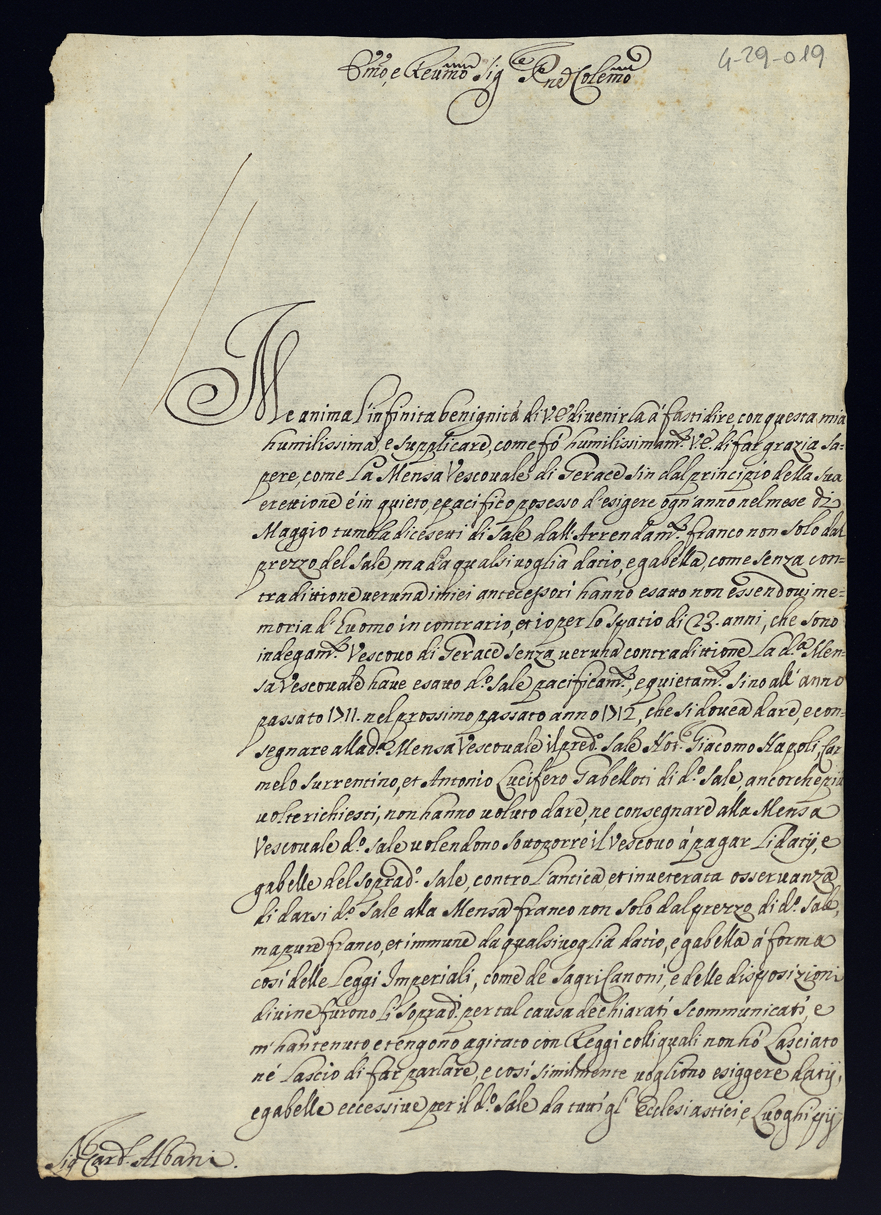 4-29-019
Em̃o, e Reum̃o Sig.re Pne Colem̃o
Me anima l'infinita benignità di V.E. di uenirla á fastidire con questa mia
humilissima, e supplicare, come fó humilissimam.te V.E. di far grazia sa=
pere, come La Mensa Vescouale di Gerace sin dal principio della sua
erettione é in quieto, e pacifico posesso d'esigere ogn'anno nel mese di
Maggio tumula dicesetti di Sale dall'Arrendam.to franco non solo dal
prezzo del sale, ma da qualsiuoglia datio, e gabella, come senza con=
tradittione ueruna i miei antecessori hanno esatto non essendoui me=
moria d'huomo in contrario, et io per lo spatio di 23. anni, che sono
indegam.te Vescouo di Gerace senza ueruna contradittione La d.a Men=
sa Vescouale haue esatto d.o sale pacificam.te, e quietam.te sino all'anno
passato 1711. nel prossimo passato anno 1712, che si douea dare, e con=
segnare alla d.a Mensa Vescouale il pred.o Sale Not.r Giacomo Napoli Car
melo Surrentino, et Antonio Lucifero Gabelloti di d.o Sale, ancorche più
uolte richiesti, non hanno uoluto dare, ne consegnare alla Mensa
Vescouale d.o sale uolendono sottoporre il Vescouo á pagar Li datij, e
gabelle del soprad.o sale, contro L'antica, et inueterata osseruanza
di darsi d.o Sale alla Mensa franco non solo dal prezzo di d.o Sale,
ma pure franco, et immune da qualsiuoglia datio, e gabella á forma
cosi delle Leggi Imperiali, come de Sagri Canoni, e delle disposizioni
diuine furono li soprad.i per tal causa dechiarati scommunicati, e
m'han tenuto e tengono agitato con Reggi colli quali non hó Lasciato
né Lascio di far parlare, e cosi similmente uogliono esiggere datij,
e gabelle eccessiue per il d.o Sale da tutti gl'Ecclesiastici, e Luoghi pij
Sig.r Card.l Albani.